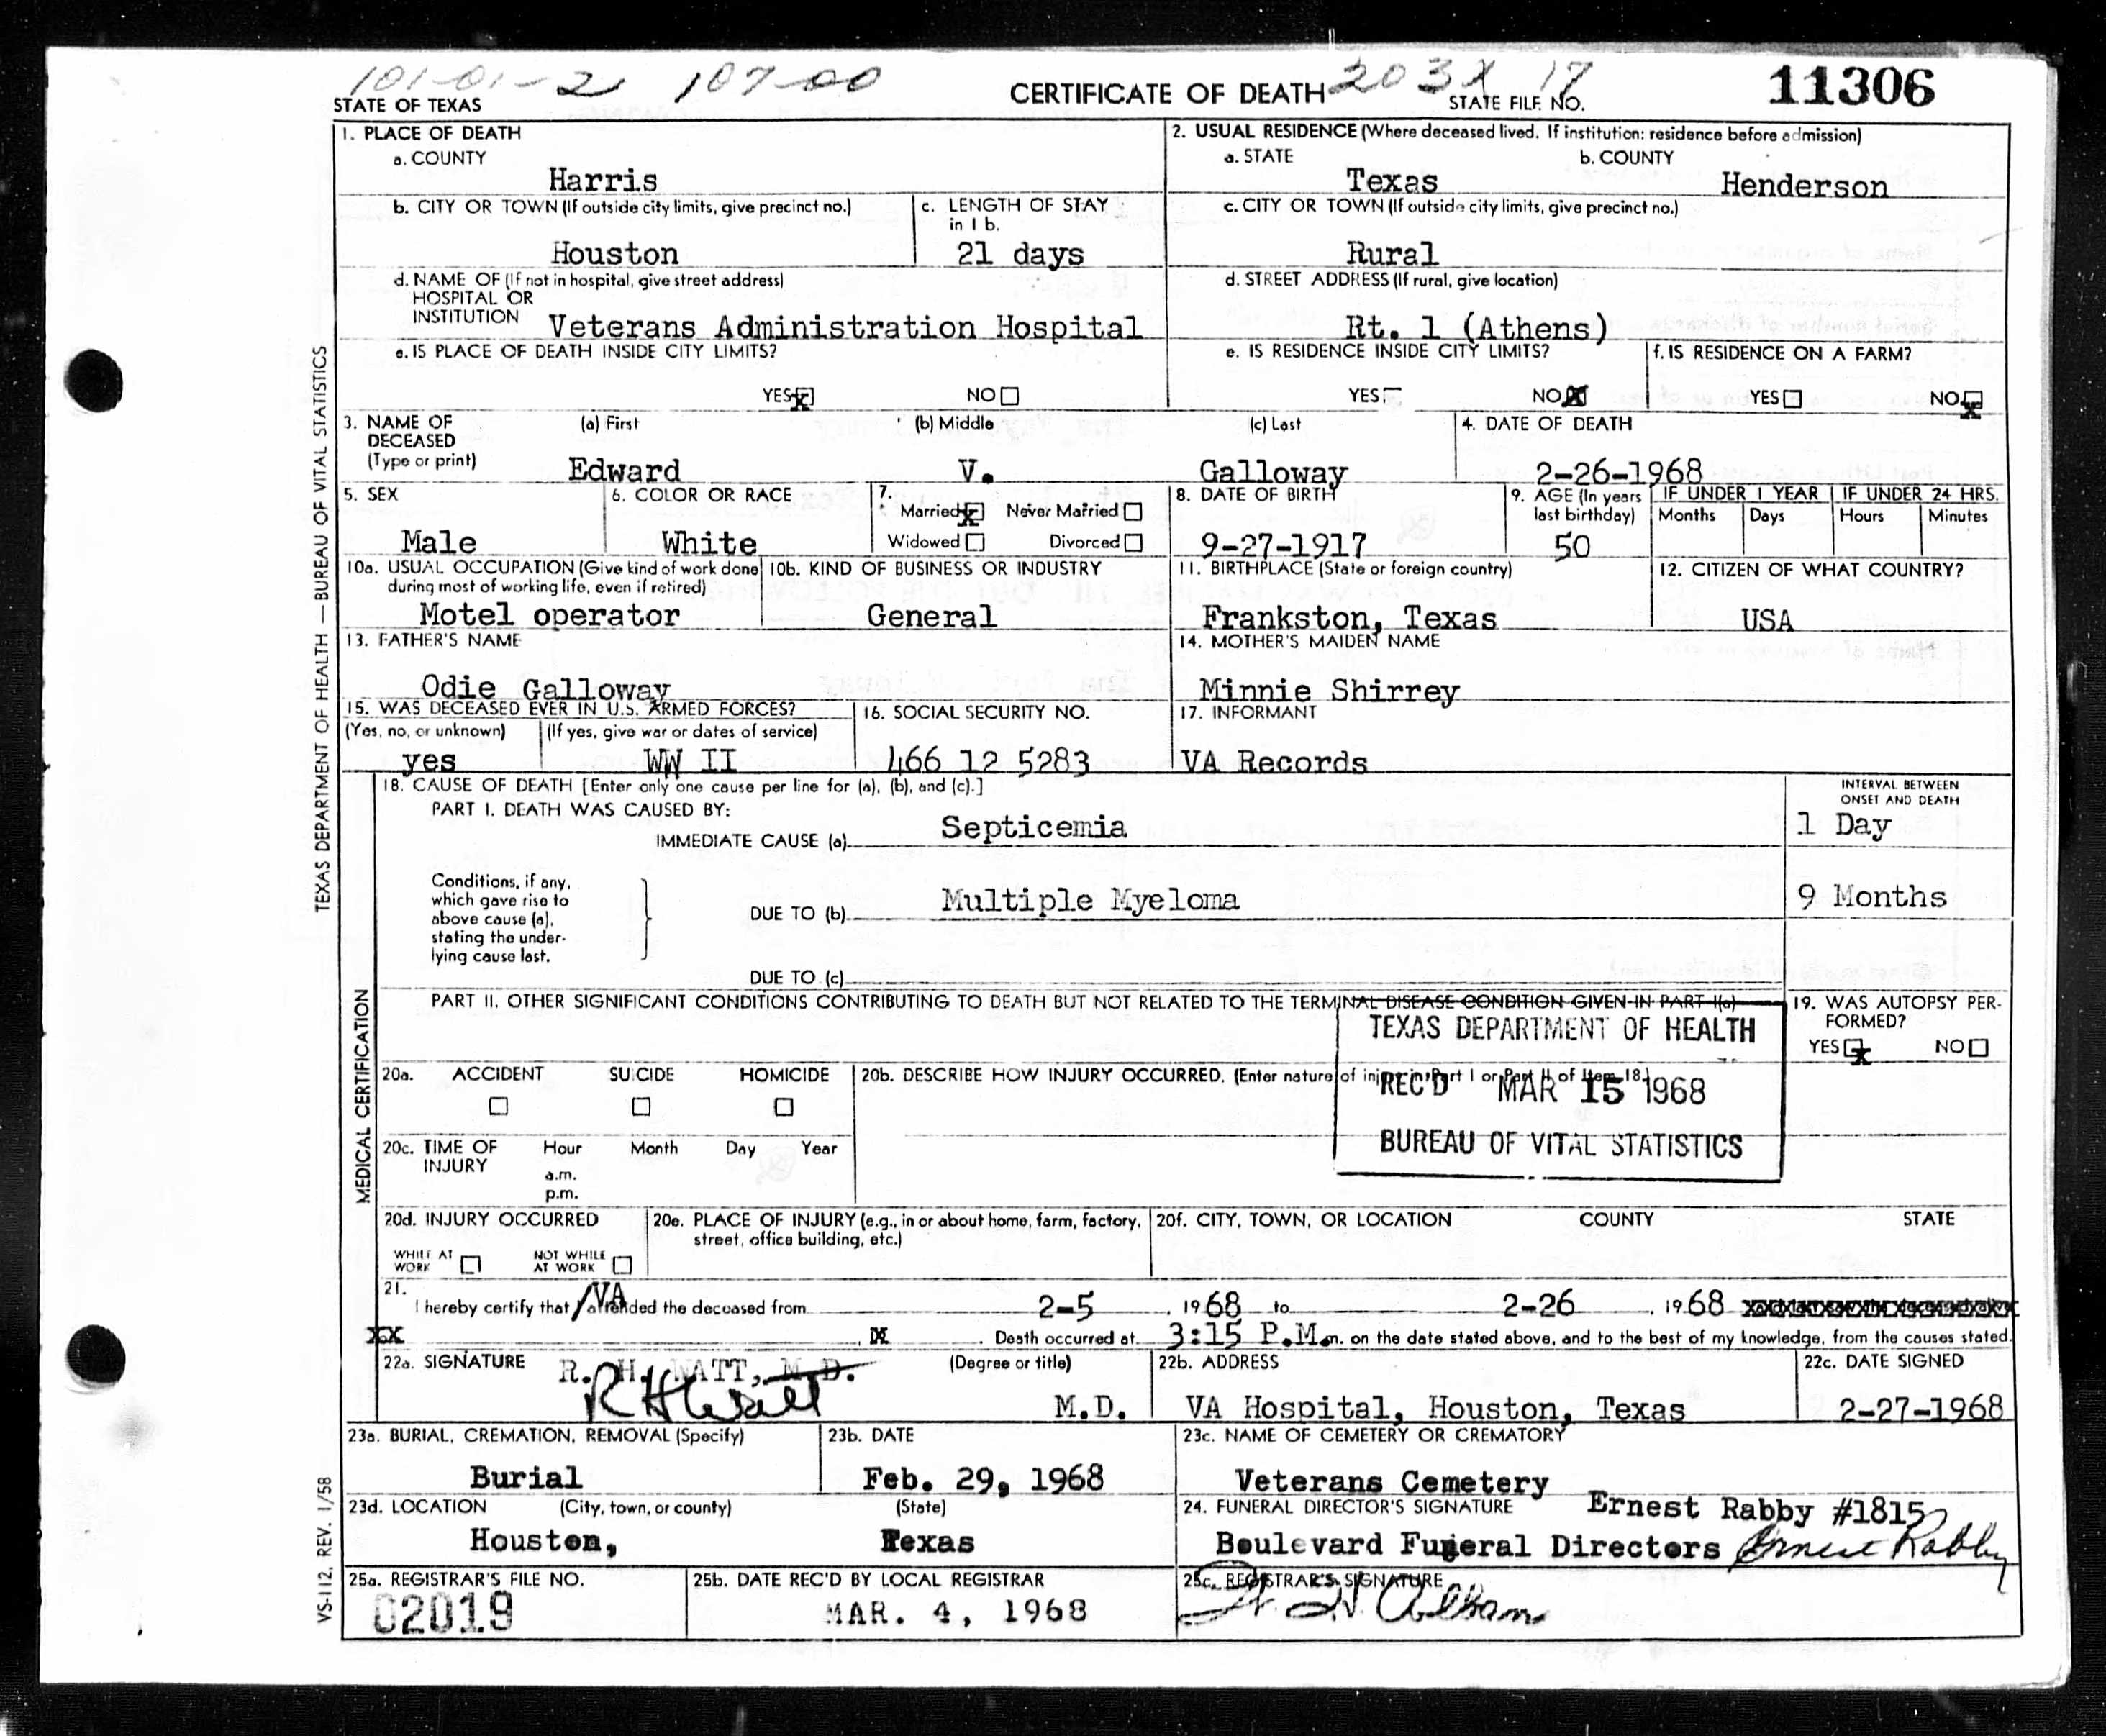 101-01-2 107-00
CERTIFICATE OF DEATH 203X 17
STATE OF TEXAS STATE FILE NO. 11306
1. PLACE OF DEATH
a. COUNTY
Harris
2. USUAL RESIDENCE (Where deceased lived. If institution: residence before admission)
a. STATE b. COUNTY
Texas Henderson
b. CITY OR TOWN (If outside city limits, give precinct no.)
Houston
c. LENGTH OF STAY
in 1 b.
21 days
c. CITY OR TOWN (If outside city limits, give precinct no.)
Rural
d. NAME OF (If not in hospital, give street address)
HOSPITAL OR
INSTITUTION Veterans Administration Hospital
d. STREET ADDRESS (If rural, give location)
Rt. 1 (Athens)
e. IS PLACE OF DEATH INSIDE CITY LIMITS?
YES X NO
e. IS RESIDENCE INSIDE CITY LIMITS?
YES NO X
f. IS RESIDENCE ON A FARM?
YES NO X
3. NAME OF
DECEASED
(Type or print)
(a) First (b) Middle (c) Last
Edward V. Galloway
4. DATE OF DEATH
2-26-1968
5. SEX
Male
6. COLOR OR RACE
White
7.
Married X Never Married
Widowed Divorced
8. DATE OF BIRTH
9-27-1917
9. AGE (In years
last birthday)
50
IF UNDER 1 YEAR IF UNDER 24 HRS.
Months Days Hours Minutes
10a. USUAL OCCUPATION (Give kind of work done
during most of working life, even if retired)
Motel operator
10b. KIND OF BUSINESS OR INDUSTRY
General
11. BIRTHPLACE (State or foreign country)
Frankston, Texas
12. CITIZEN OF WHAT COUNTRY?
USA
13. FATHER'S NAME
Odie Galloway
14. MOTHER'S MAIDEN NAME
Minnie Shirrey
15. WAS DECEASED EVER IN U.S. ARMED FORCES?
(Yes, no, or unknown) (If yes, give war or dates of service)
yes WW II
16. SOCIAL SECURITY NO.
466 12 5283
17. INFORMANT
VA Records
18. CAUSE OF DEATH [Enter only one cause per line for (a), (b), and (c).]
PART I. DEATH WAS CAUSED BY:
IMMEDIATE CAUSE (a) Septicemia
INTERVAL BETWEEN
ONSET AND DEATH
1 Day
Conditions, if any,
which gave rise to
above cause (a),
stating the under-
lying cause last.
DUE TO (b) Multiple Myeloma
9 Months
DUE TO (c)
PART II. OTHER SIGNIFICANT CONDITIONS CONTRIBUTING TO DEATH BUT NOT RELATED TO THE TERMINAL DISEASE CONDITION GIVEN IN PART I(a)
19. WAS AUTOPSY PER-
FORMED?
YES X NO
TEXAS DEPARTMENT OF HEALTH
REC'D MAR 15 1968
BUREAU OF VITAL STATISTICS
20a. ACCIDENT SUICIDE HOMICIDE
20b. DESCRIBE HOW INJURY OCCURRED. (Enter nature of injury in Part I or Part II of Item 18.)
20c. TIME OF
INJURY
Hour Month Day Year
a.m.
p.m.
20d. INJURY OCCURRED
WHILE AT
WORK
NOT WHILE
AT WORK
20e. PLACE OF INJURY (e.g., in or about home, farm, factory,
street, office building, etc.)
20f. CITY, TOWN, OR LOCATION COUNTY STATE
21.
I hereby certify that /VA attended the deceased from 2-5, 1968 to 2-26, 1968
Death occurred at 3:15 P.M. m. on the date stated above, and to the best of my knowledge, from the causes stated.
22a. SIGNATURE (Degree or title)
R. H. WATT, M.D.
RHWatt M.D.
22b. ADDRESS
VA Hospital, Houston, Texas
22c. DATE SIGNED
2-27-1968
23a. BURIAL, CREMATION, REMOVAL (Specify)
Burial
23b. DATE
Feb. 29, 1968
23c. NAME OF CEMETERY OR CREMATORY
Veterans Cemetery
23d. LOCATION (City, town, or county) (State)
Houston, Texas
24. FUNERAL DIRECTOR'S SIGNATURE Ernest Rabby #1815
Boulevard Funeral Directors Ernest Rabby
25a. REGISTRAR'S FILE NO.
02019
25b. DATE REC'D BY LOCAL REGISTRAR
MAR. 4, 1968
25c. REGISTRAR'S SIGNATURE
TEXAS DEPARTMENT OF HEALTH — BUREAU OF VITAL STATISTICS
MEDICAL CERTIFICATION
VS-112, REV. 1/58